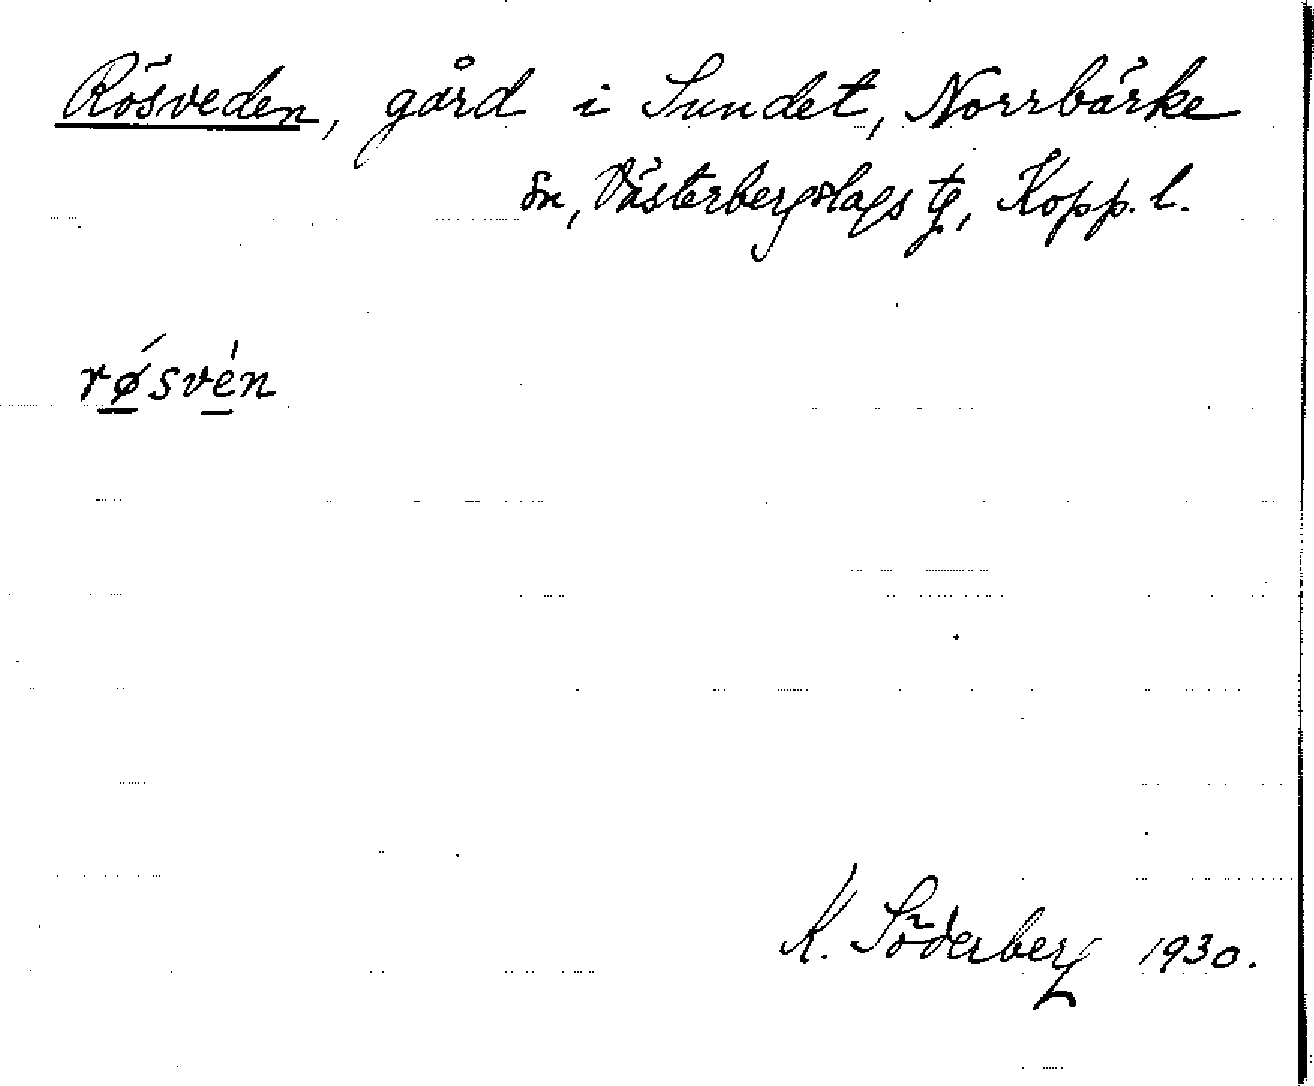 Rösveden, gård i Sundet, Norrbärke
sn, Västerbergslags tg, Kopp. l.
rǿ̲své̲n
K. Söderberg 1930.